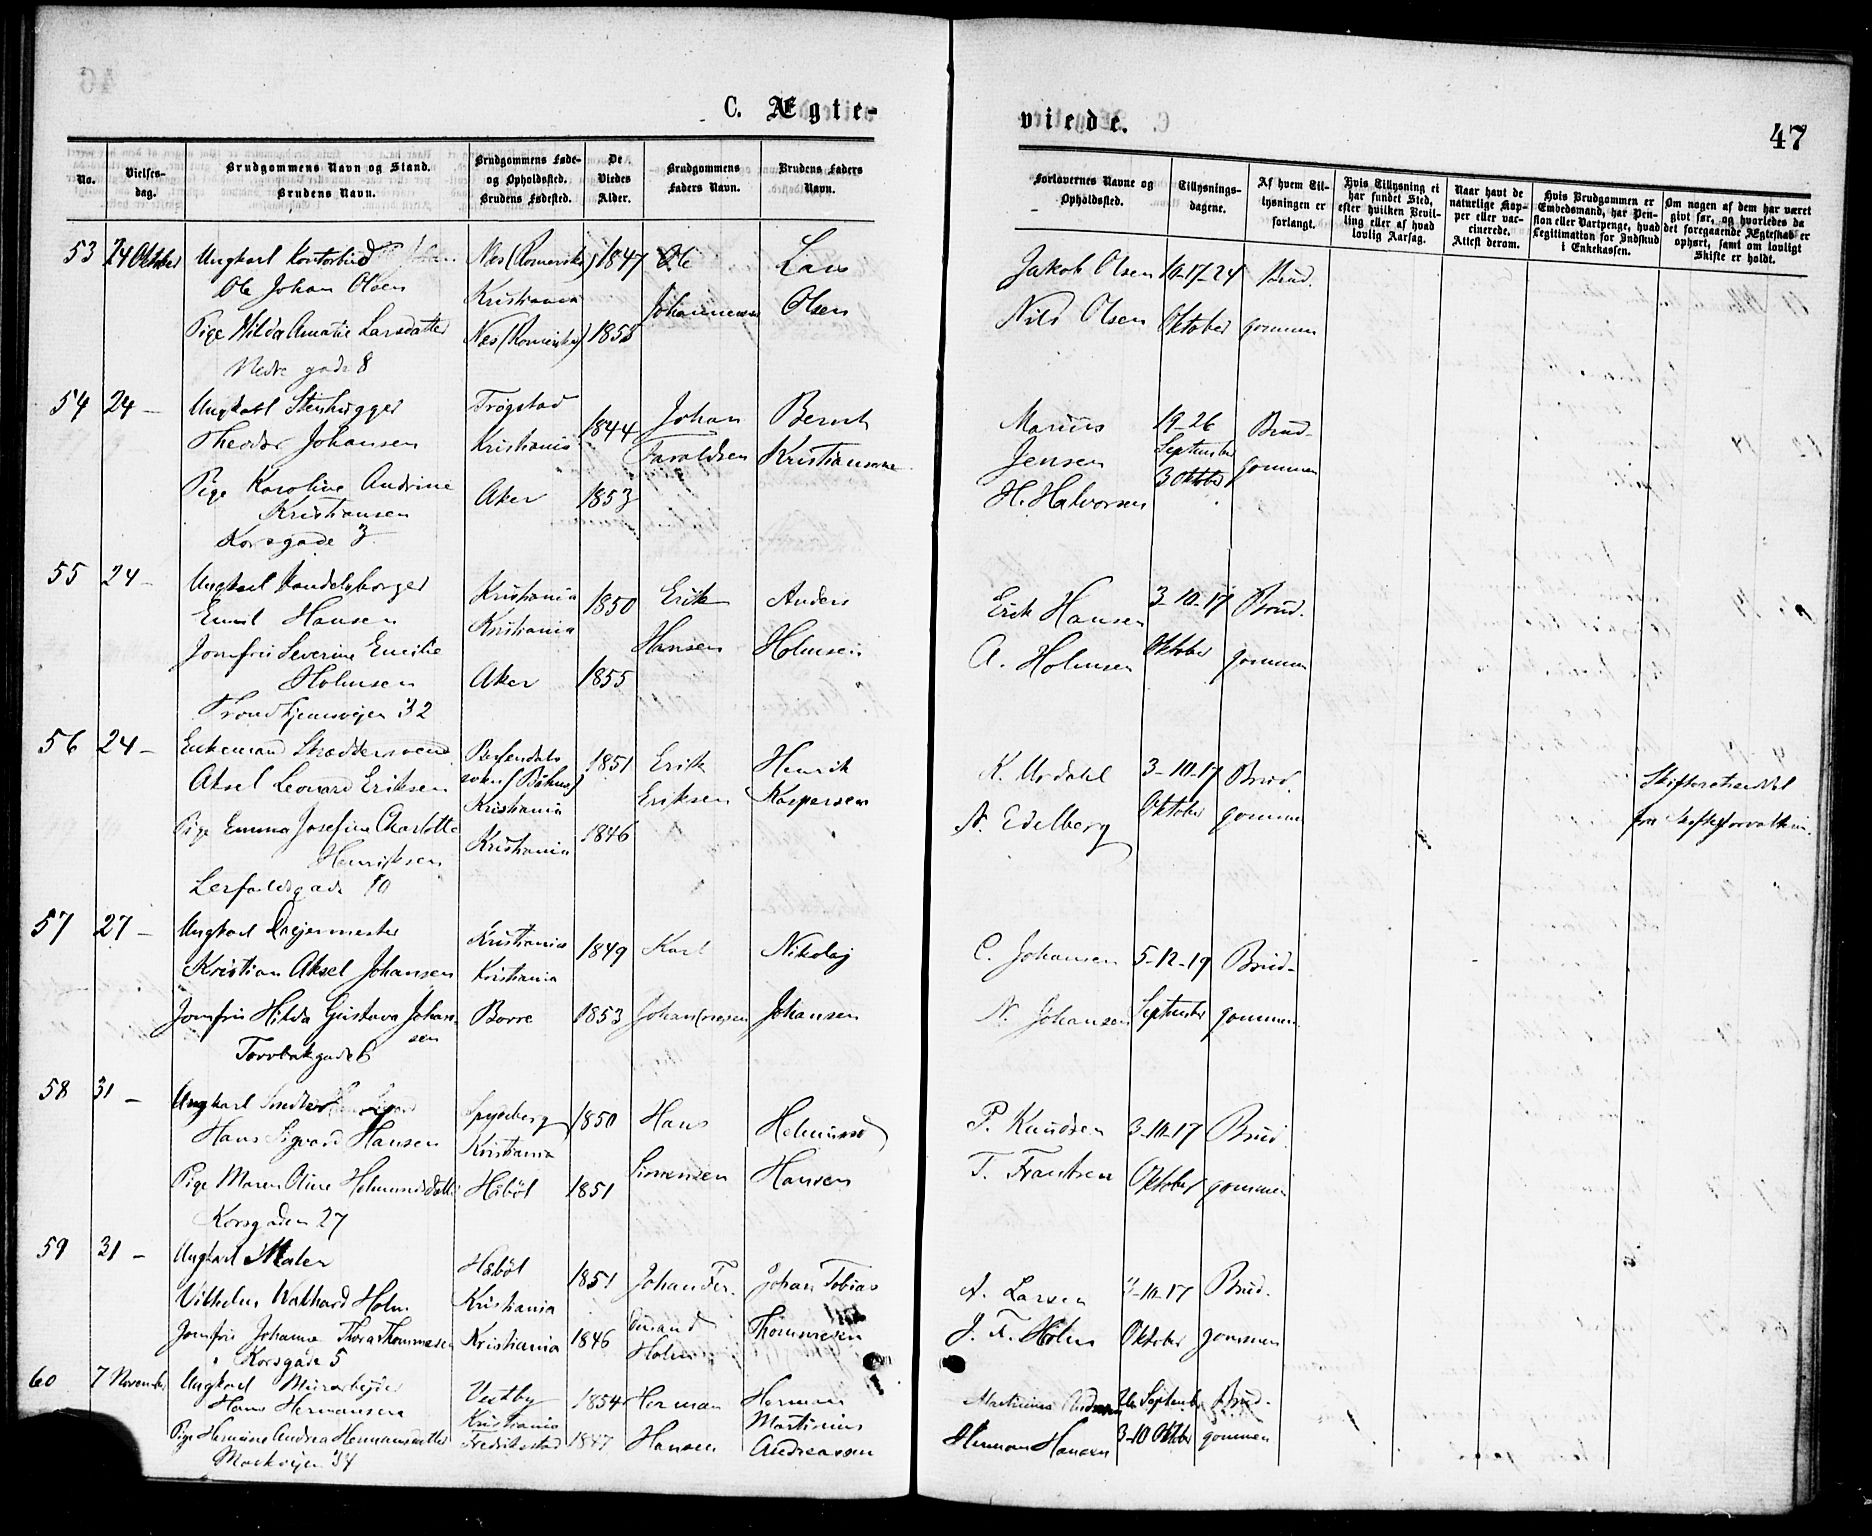 C. Ægte-
viede.
47
No.
Vielses-
dag.
Brudgommens Navn og Stand.
Brudens Navn.
Brudgommens Føde-
og Opholdssted.
Brudens Fødested.
De
Viedes
Alder.
Brudgommens
Faders Navn.
Brudens Faders
Navn.
Forlovernes Navne og
Opholdssted.
Tillysnings-
dagene.
Af hvem Til-
lysningen er
forlangt.
Hvis Tillysning ei
har fundet Sted,
efter hvilken Bevil-
ling eller af hvad
lovlig Aarsag.
Naar havt de
naturlige Kop-
per eller vac-
cinerede.
Attest derom.
Hvis Brudgommen er
Embedsmand, har Pen-
sion eller Vartpenge, hvad
Legitimation for Indskud
i Enkekassen.
Om nogen af dem har været
gift før, og hvorledes da
det foregaaende Ægteskab er
ophørt, samt om lovligt
Skifte er holdt.
53 24 Oktober Ungkarl Kontorbud Nes (Romerike) 1847 Ole Lars Jakob Olsen 10-17-24 Brud-
Ole Johan Olsen Kristiania Johannesen Olsen Nils Olsen Oktober gommen
Pige Hilda Amalie Larsdatter Nes (Romerike) 1853
Nedre gade 8
54 24 - Ungkarl Stenhugger Trøgstad 1844 Johan Bernt Marius 19-26 Brud-
Theodor Johansen Kristiania Taraldsen Kristiansen Jensen September gommen
Pige Karoline Andrine Aker 1853 H. Halvorsen 3 Oktober
Kristiansen
Korsgade 3
55 24 - Ungkarl Handelsborger Kristiania 1850 Erik Anders Erik Hansen 3-10-17 Brud-
Emil Hansen Kristiania Hansen Holmsen A. Holmsen Oktober gommen
Jomfru Severine Emilie Aker 1855
Holmsen
Trondhjemsvejen 32
56 24 - Enkemand Skræddersvend 1851 Erik Henrik K. Urdahl 3-10-17 Brud-
Aksel Leonard Eriksen Kristiania Eriksen Kaspersen N. Edelberg Oktober gommen
Pige Emma Josefine Charlotte Kristiania 1846
Henriksen
Lerfaldsgade 10
57 27 - Ungkarl Drejermester Kristiania 1849 Karl Nikolaj C. Johansen 5-12-19 Brud-
Kristian Aksel Johansen Kristiania Johan(nes)sen Johansen N. Johansen September gommen
Jomfru Hilda Gustava Johan- Borre 1853
sen
Torvbakgade 6
58 31 - Ungkarl Snedker Spydeberg 1850 Hans Helmund P. Knudsen 3-10-17 Brud-
Hans Sigvard Hansen Kristiania Simensen Hansen T. Frantsen Oktober gommen
Pige Maren Oline Helmundsdatter Håbøl 1851
Korsgaden 27
59 31 - Ungkarl Maler Håbøl 1851 Johan Fer- Johan Tobias A. Larsen 3-10-17 Brud-
Vilhelm Walhard Holm Kristiania dinand Thommesen J. F. Holm Oktober gommen
Jomfru Johanne Thora Thommesen Kristiania 1846 Holm
Korsgade 5
60 7 November Ungkarl Murarbejder Vestby 1854 Herman Herman Martinius Andreassen 26 September Brud-
Hans Hermansen Kristiania Hansen Martinius Herman Hansen 3-10 Oktober gommen
Pige Hermine Andrea Hermansdatter Fredrikstad 1847 Andreassen
Markvejen 34